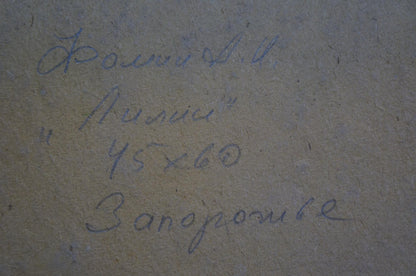 Фомин А. И
"Лилии"
45х60
Запорожье